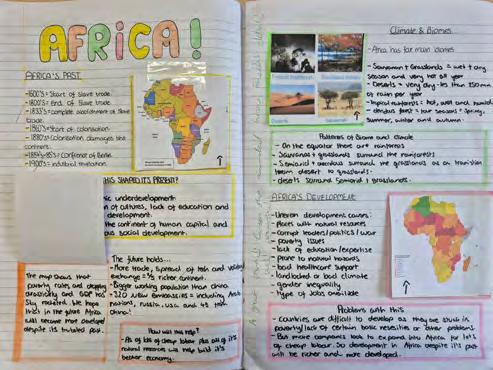 AFRICA!
AFRICA'S PAST
- 1600's = Start of slave trade.
- 1800's = End of Slave trade.
- 1833's = complete abolishment of slave
trade.
- 1880's = colonisation damages the
continent.
- 1900's = industrial revolution.
THIS SHAPED IT'S PRESENT?
underdevelopment
of cultures, lack of education and
development.
the continent of human capital and
social development.
The map shows that
poverty rates are dropping
drastically and GDP has
Sky rocketed. We hope
that in the future Africa
will become more developed
despite its troubled past.
The future holds...
- More trade, spread of tech and
exchange = 1/3 richer continent.
- Bigger working population than china.
- 320 new embassies = including
nations, russia, u.s.a and 45 from
china!
How will this help?
- As lots of cheap labour plus all of it's
natural resources will help build it's
better economy.
Climate & Biomes
- Africa has four main biomes
- Savannah + Grasslands = wet + dry
season and very hot all year
- Deserts = very dry - less than 250mm
of rain per year
- tropical rainforests = hot, wet and humid
- four seasons = Spring,
Summer, winter and autumn.
Patterns of Biome and climate
- On the equator there are rainforests
- Savannas + grasslands surround the rainforests
- Semiarid + deserts surround the grasslands as an transition
from desert to grasslands.
- deserts surround Semiarid + grasslands.
AFRICA'S DEVELOPMENT
- Uneven development causes:
- Places with natural resources
- corrupt leaders/politics/war
- poverty issues
- lack of education/expertise
- prone to natural hazards
- bad healthcare support
- landlocked or bad climate
- gender inequality
- type of jobs available
Problems with this
- Countries are difficult to develop as they are stuck in
poverty/lack of certain basic nesesities or other problems.
- But more companies look to expand into Africa for lots
of cheap labour. So development in Africa despite it's past
will be richer and more developed.